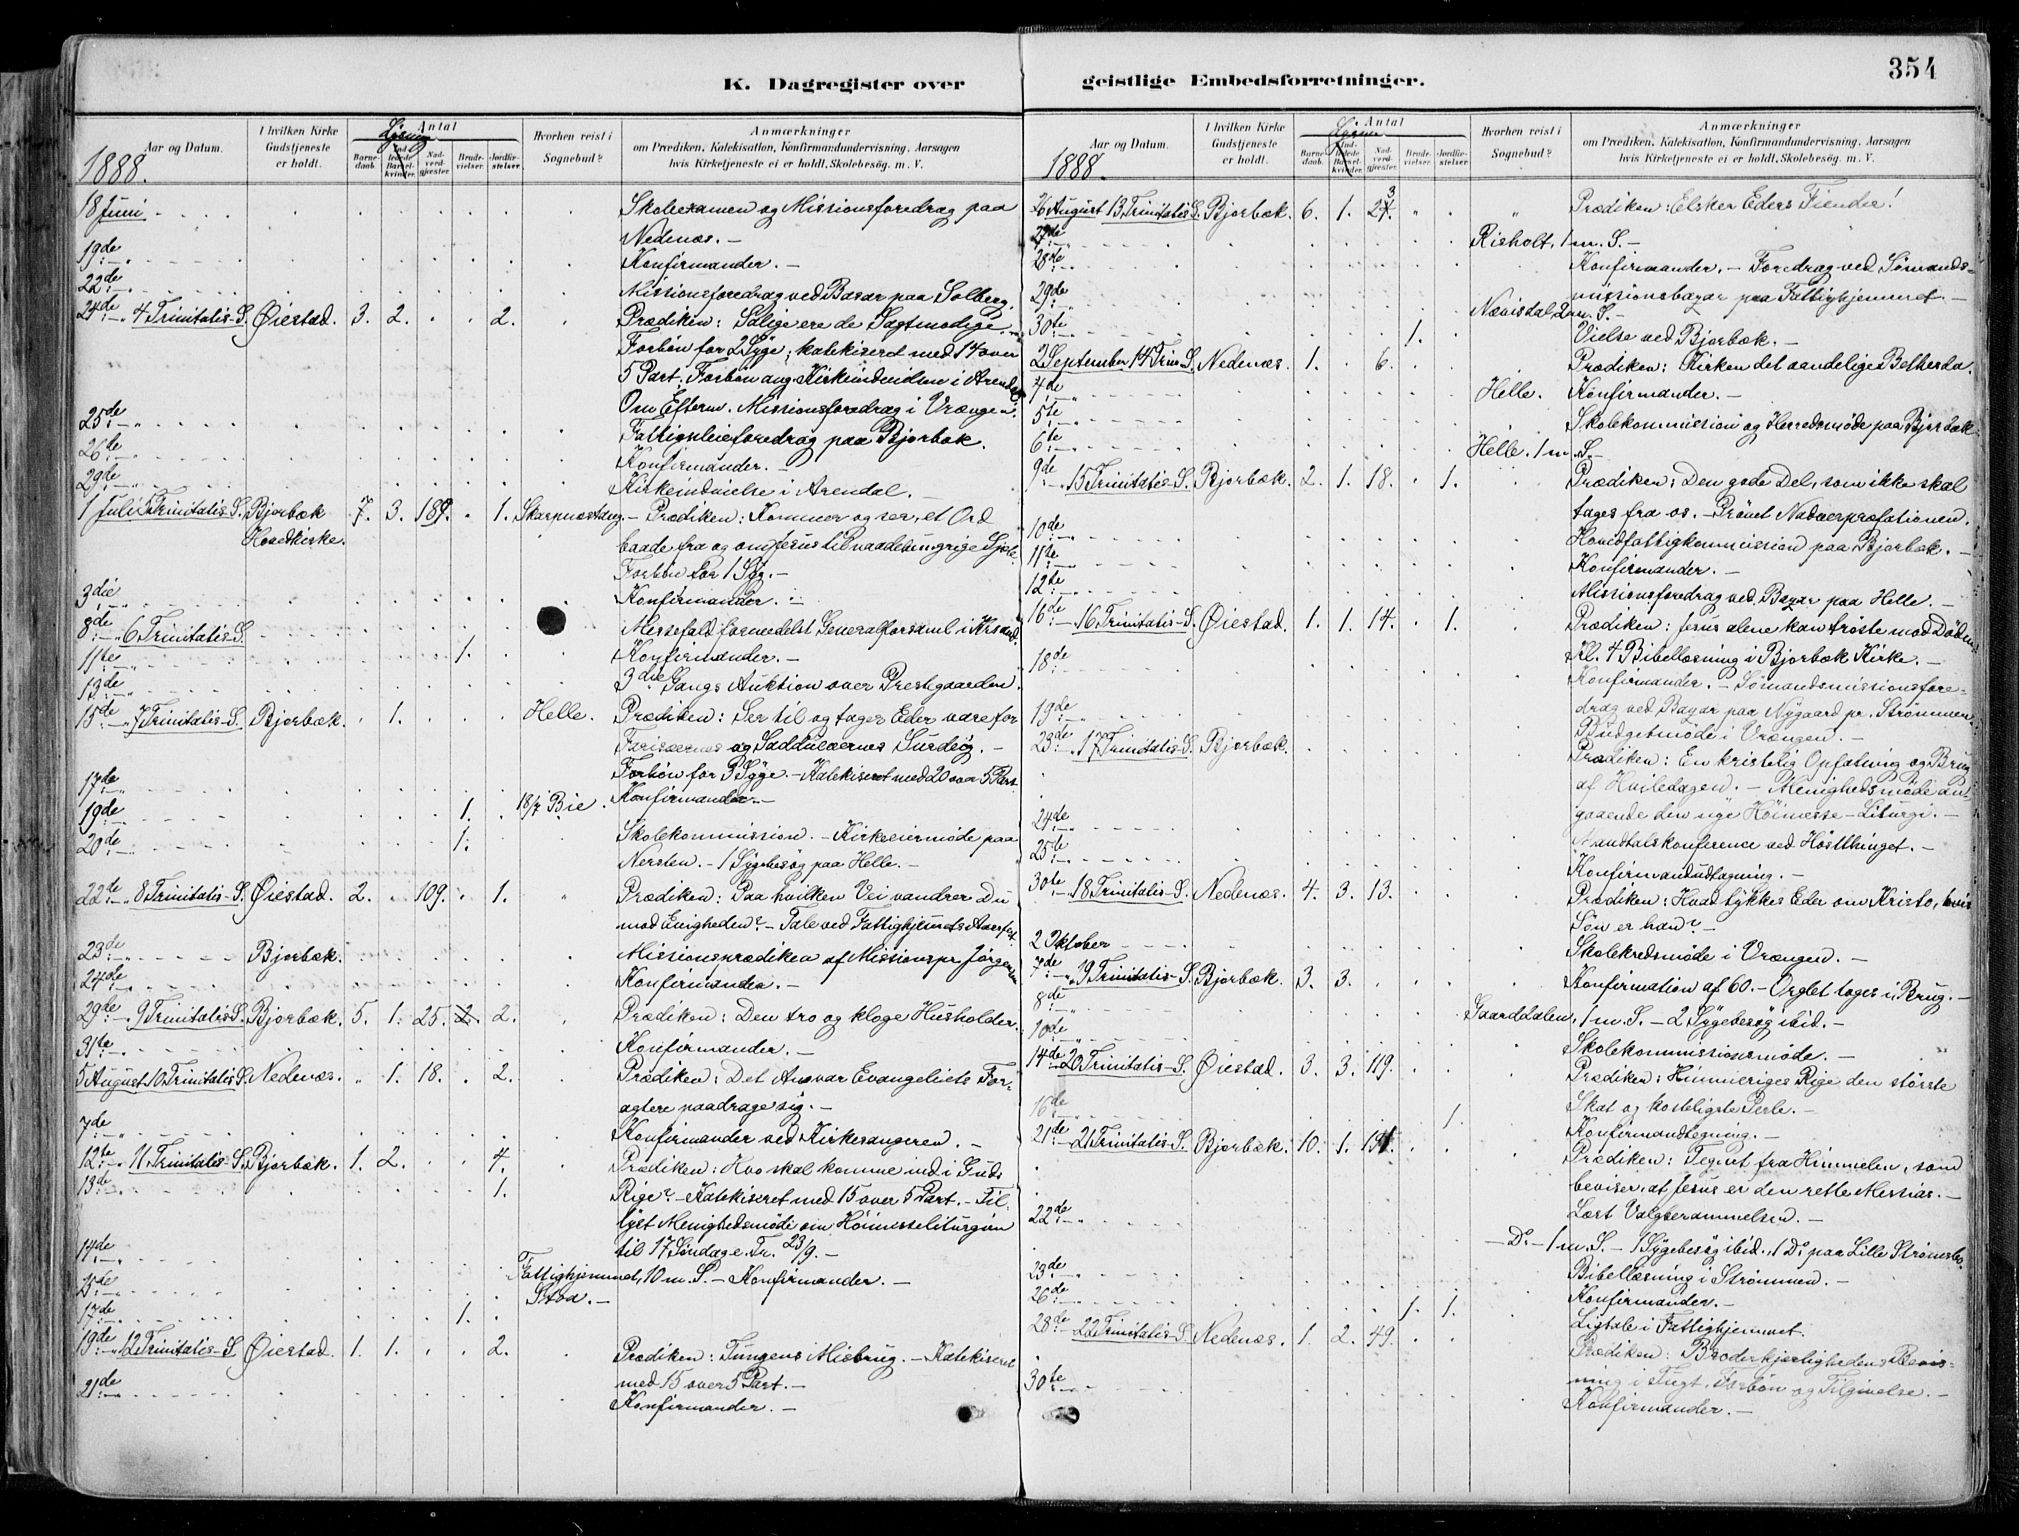 354
K. Dagregister over
Aar og Datum.
I hvilken Kirke Gudstjeneste er holdt.
Antal
Barnedaab.
Indledede Barselkvinder.
Nadverdgjester.
Brudevielser.
Jordfæstelser.
Hvorhen reist i Sognebud?
Anmærkninger
om Prædiken, Katekisation, Konfirmandundervisning, Aarsagen
hvis Kirketjeneste ei er holdt, Skolebesøg. m. V.
1888.
18 Juni Skoleexamen og Missionsforedrag paa
Nedenæs. —
19de Konfirmander. —
22de Missionsforedrag ved Basar paa Solberg.
24de 4 Trinitatis-S. Øiestad. 3. 2. 2. Prædiken: Salige ere de Sagtmodige
Forbøn for 2 Syge; katekiseret med 14 over
5 Part. Forbøn ang. Kirkeindvielsen i Arendal
Om Efterm. Missionsforedrag i Vrængen.
25de paa Bjorbæk.
26de Konfirmander. —
29de Kirkeindvielse i Arendal. —
1 Juli 5 Trinitatis S. Bjorbæk 7. 3. 189. 1. — Prædiken: Kommer og ser, et Ord
Hovedkirke. baade fra og om Jesus til naadehungrige Sjele
Forbøn for 1 Syg. —
3die Konfirmander. —
8de 6 Trinitatis S. Messefald formedelst Generalforsaml. i Krsand.
11te 1. Konfirmander. —
13de 3die Gangs Auktion over Prestgaarden.
15de 7 Trinitatis-S. Bjorbæk. 1. Helle. Prædiken: Ser til og tager Eder vare for
Farisæernes og Sadducæernes Surdeig. —
Forbøn for 3 Syge. — Katekiseret med 20 over 5 Part
17de Konfirmander. —
19de 1. 18/7 Bie.
20de 1. Skolekommission. — Kirkeeiermøde paa
Nersten. — 1 Sygebesøg paa Helle. —
22de 8 Trinitatis-S. Øiestad. 2. 109. 1. Prædiken: Paa hvilken Vei vandrer Du
mod Evigheden? — Tale ved Fattighjemmets Aarsfest
23de Bjorbæk. Missionsprædiken af Missionspr. Jørgensen
24de Konfirmander. —
29de 9 Trinitatis S. Bjorbæk. 5. 1. 25. 2. 2. Prædiken: Den tro og kloge Husholder.
31te Konfirmander. —
5 August 10 Trinitatis S. Nedenæs. 1. 18. 2. Prædiken: Det Ansvar Evangeliets For-
agtere paadrage sig. —
7de Konfirmander ved Kirkesangeren. —
12te 11 Trinitatis-S. Bjorbæk. 1. 2. 4. Prædiken: Hvo skal komme ind i Guds
13de 1. Rige? — Katekiseret med 15 over 5 Part. — Til-
lyst Menighedsmøde om Høimesseliturgien
til 17 Søndag e. Tr. 23/9. —
14de Fattighjemmet, 10 m. S. — Konfirmander. —
15de Stoa. —
17de 1.
19de 12 Trinitatis-S. Øiestad. 1. 1. 2. Prædiken: Tungens Misbrug. — Katekiseret
med 15 over 5 Part. —
21de Konfirmander. —
geistlige Embedsforretninger.
Aar og Datum.
I hvilken Kirke Gudstjeneste er holdt.
Antal
Barnedaab.
Indledede Barselkvinder.
Nadverdgjester.
Brudevielser.
Jordfæstelser.
Hvorhen reist i Sognebud?
Anmærkninger
om Prædiken, Katekisation, Konfirmandundervisning, Aarsagen
hvis Kirketjeneste ei er holdt, Skolebesøg. m. V.
1888.
26 August 13 Trinitatis S. Bjorbæk. 6. 1. Prædiken: Elsker Eders Fiender!
27de Risholt, 1 m. S. —
28de Konfirmander. — Foredrag ved Sømands-
29de missionsbazar paa Fattighjemmet. —
Nævisdal, 2 m. S. —
30te 1. Vielse ved Bjorbæk. —
2 September 14 Trin. S. Nedenæs. 1. 6. Prædiken: Kirken det aandelige Bethesda.
4de Helle. Konfirmander. —
5te Skolekommission og Herredsmøde paa Bjorbæk
6te Helle. 1 m. S. —
9de 15 Trinitatis-S. Bjorbæk. 2. 1. 18. 1. Prædiken: Den gode Del, som ikke skal
tages fra os. — Prøvet Nadverpræfationen.
10de Hovedfattigkommission paa Bjorbæk. —
11te Konfirmander. —
12te Missionsforedrag ved Bazar paa Helle. —
16de 16 Trinitatis-S. Øiestad. 1. 1. 14. 1. Prædiken: Jesus alene kan trøste mod Døden
Kl. 4 Bibellæsning i Bjorbæk Kirke. —
18de Konfirmander. — Sømandsmissionsfore-
drag ved Bazar paa Nygaard pr. Strømmen.
19de Budgetmøde i Vrængen. —
23de 17 Trinitatis-S. Bjorbæk. Prædiken: En kristelig Opfatning og Brug
af Hviledagen. — Menighedsmøde an-
gaaende den nye Høimesse-Liturgi. —
24de Mandtalskonference ved Høstthinget. —
25te Konfirmandudtagning. —
30te 18 Trinitatis-S. Nedenæs. 4. 3. 13. Prædiken: Hvad tykkes Eder om Kristo, hvis
Søn er han? —
2 Oktober Skolekredsmøde i Vrængen. —
7de 19 Trinitatis-S. Bjorbæk. 3. 3. Konfirmation af 60. — Orglet tages i Brug. —
8de 1 m. S. — 2 Sygebesøg ibid. —
10de Skolekommissionsmøde. —
14de 20 Trinitatis-S. Øiestad. 3. 3. 119. Prædiken: Himmeriges Rige den største
Skat og kosteligste Perle. —
16de 1. Konfirmandtegning. —
21de 21 Trinitatis-S. Bjorbæk. 10. 1. Prædiken: Tegnet fra Himmelen, som
beviser, at Jesus er den rette Messias. —
Læst Valgberammelsen. —
22de — Do — 1 m. S. — 1 Sygebesøg ibid. 1 Do paa Lille Strømsbo.
23de Bibellæsning i Strømmen. —
26de Konfirmander. —
1. 1. Ligtale i Fattighjemmet.
28de 22 Trinitatis-S. Nedenæs. 1. 2. 49. Prædiken: Broderkjærlighedens Bevis-
ning i Tugt, Forbøn og Tilgivelse. —
30te Konfirmander. —